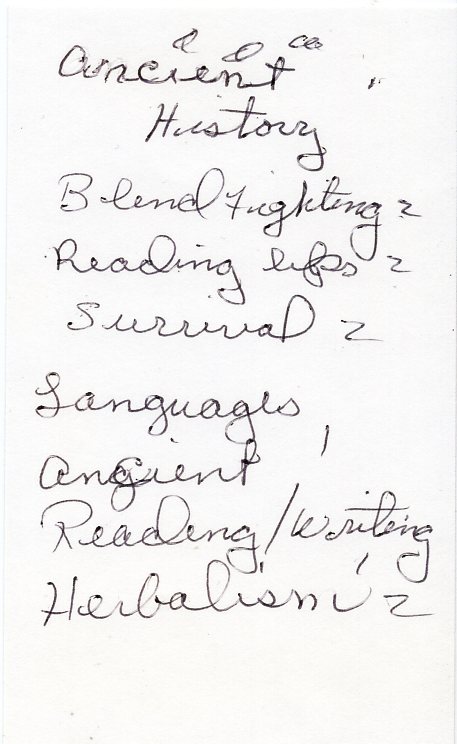 Ancient
History
Blend Fighting 2
Reading lips 2
Survival 2
Languages
Ancient 1
Reading/Writing
Herbalism 2